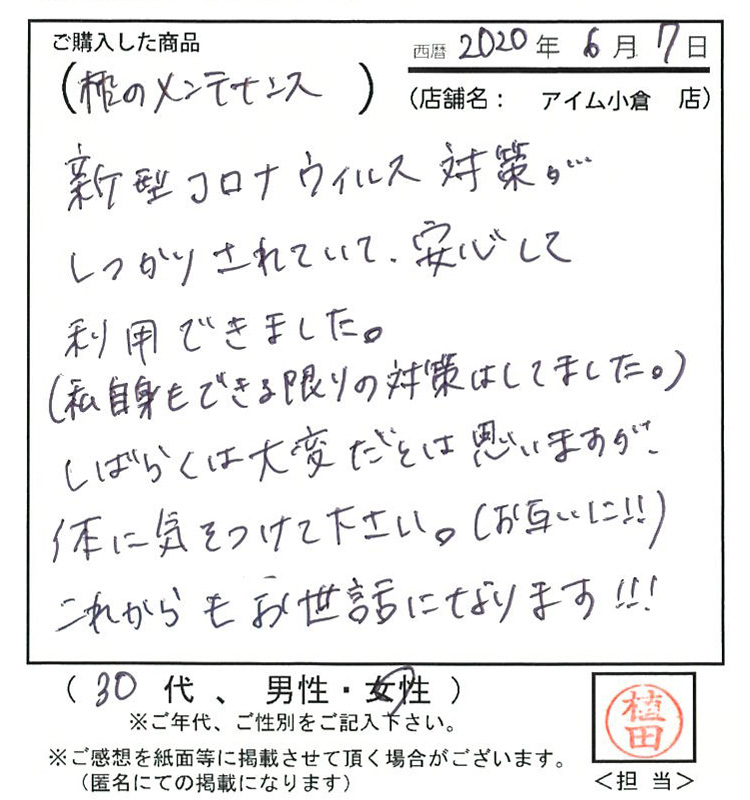 ご購入した商品
西暦 2020 年 6 月 7 日
(靴のメンテナンス )
(店舗名： アイム小倉 店)
新型コロナウィルス対策が
しっかりされていて、安心して
利用できました。
(私自身もできる限りの対策はしてました。)
しばらくは大変だとは思いますが、
体に気をつけて下さい。(お互いに!!)
これからもお世話になります!!!
( 30 代 、 男性・女性 )
※ご年代、ご性別をご記入下さい。
※ご感想を紙面等に掲載させて頂く場合がございます。
(匿名にての掲載になります)
植田
＜担 当＞